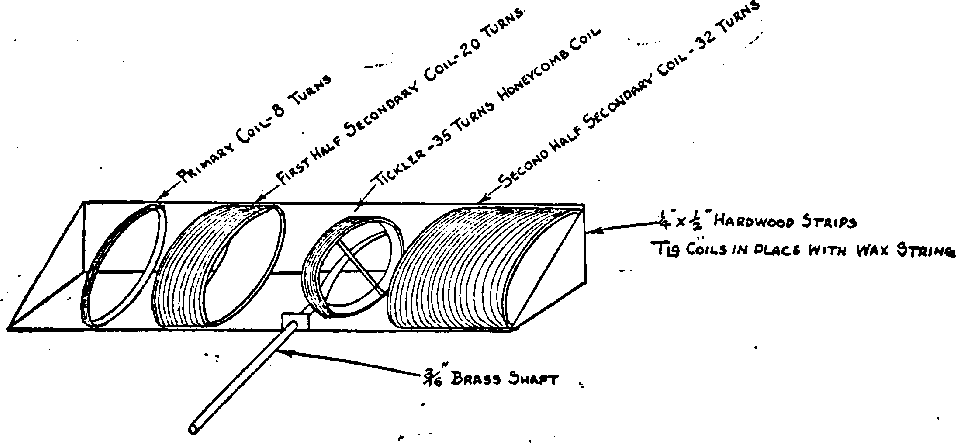 PRIMARY COIL-8 TURNS
FIRST HALF SECONDARY COIL-20 TURNS
TICKLER-35 TURNS HONEYCOMB COIL
SECOND HALF SECONDARY COIL-32 TURNS
1/4" x 1/2" HARDWOOD STRIPS
COILS IN PLACE WITH WAX STRING
3/16" BRASS SHAFT